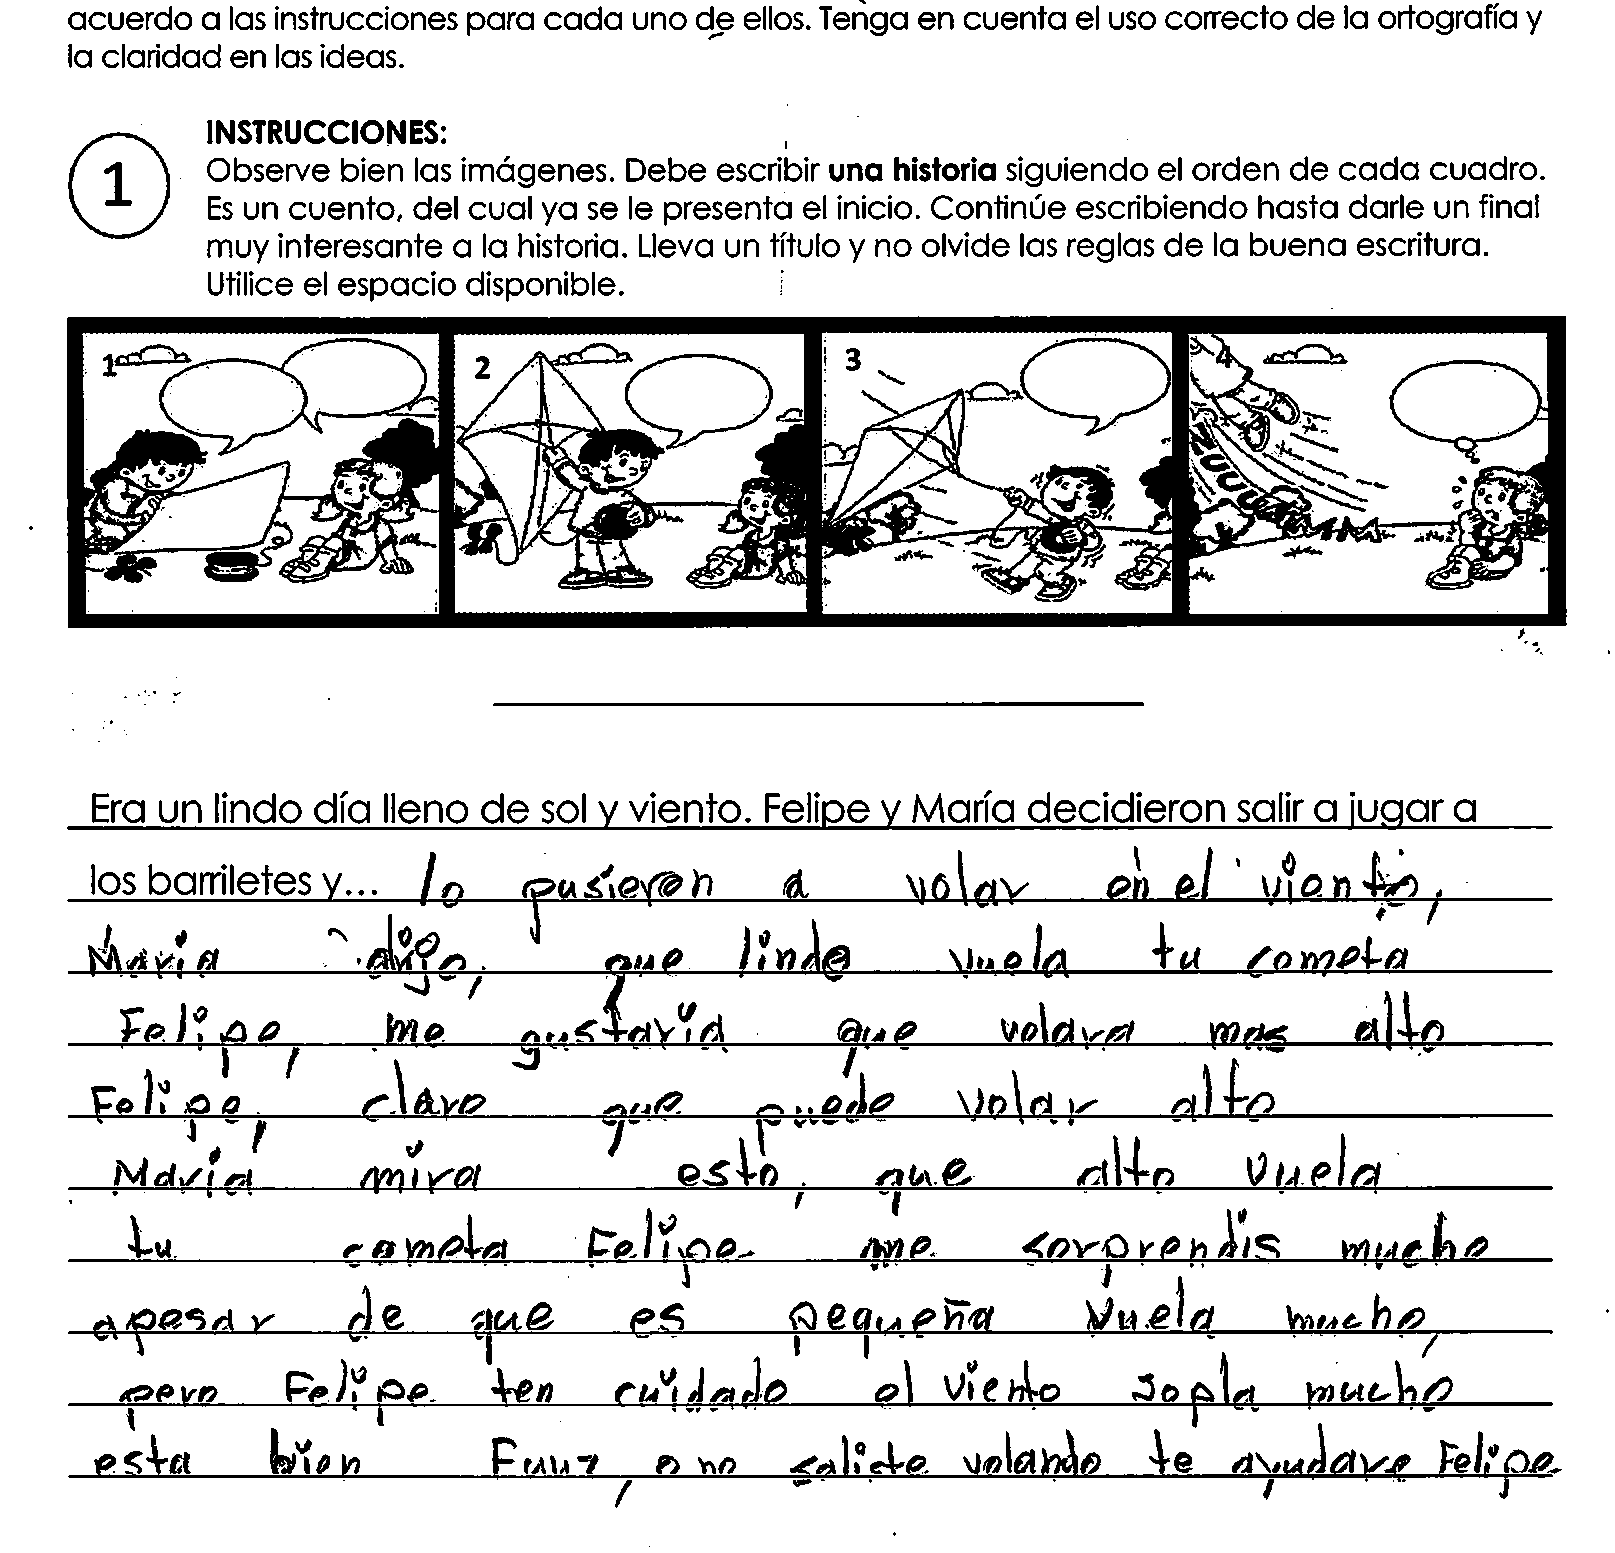 acuerdo a las instrucciones para cada uno de ellos. Tenga en cuenta el uso correcto de la ortografía y
la claridad en las ideas.
INSTRUCCIONES:
1
Observe bien las imágenes. Debe escribir una historia siguiendo el orden de cada cuadro.
Es un cuento, del cual ya se le presenta el inicio. Continúe escribiendo hasta darle un final
muy interesante a la historia. Lleva un título y no olvide las reglas de la buena escritura.
Utilice el espacio disponible.
1 2 3 4
ZUUUU
Era un lindo día lleno de sol y viento. Felipe y María decidieron salir a jugar a
los barriletes y... lo pusieron a volar en el viento,
Maria dijo, que linda vuela tu cometa
Felipe, me gustaria que volara mas alto
Felipe, claro que puede volar alto
Maria mira esto, que alto vuela
tu cometa Felipe me sorprendis mucho
apesar de que es pequeña vuela mucho,
pero Felipe ten cuidado el viento sopla mucho
esta bien Fuuz, o no saliste volando te ayudare Felipe